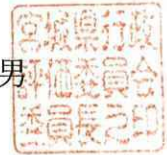 男
宮城県行政
評価委員会
委員長之印